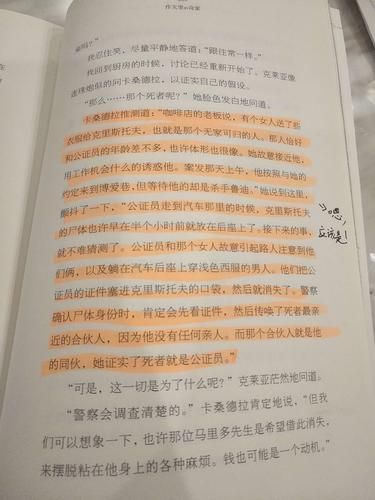 作文里的奇案
索吗？”
我忍住笑，尽量平静地答道：“跟往常一样。”
我回到厨房的时候，讨论已经重新开始了。克莱亚像
连珠炮似的问卡桑德拉，以证实自己的假设。
“那么……那个死者呢？”她脸色发白地问道。
卡桑德拉推测道：“咖啡店的老板说，有个女人送了些
衣服给克里斯托夫，也就是那个无家可归的人。那人恰好
和公证员的年龄差不多，也许体形也很像。她故意接近他，
用工作机会什么的诱惑他。案发那天上午，他按照与她的
约定来到博爱巷，但等待他的却是杀手鲁迪。”她说到这里，
颤抖了一下，“公证员走到汽车那里的时候，克里斯托夫
的尸体也许早在半个小时前就放在后座上了。接下来的事，
就不难猜测了。公证员和那个女人故意引起路人注意到他
们俩，以及躺在汽车后座上穿浅色西服的男人。他们把公
证员的证件塞进克里斯托夫的口袋，然后就消失了。警察
确认尸体身份时，肯定会先看证件，然后传唤了死者最亲
近的合伙人，因为他没有任何亲人。而那个合伙人就是他
的同伙，她证实了死者就是公证员。”
“可是，这一切是为了什么呢？”克莱亚茫然地问道。
“警察会调查清楚的。”卡桑德拉肯定地说，“但我
们可以想象一下，也许那位马里多先生是希望借此消失，
来摆脱粘在他身上的各种麻烦。钱也可能是一个动机。”
嗯，
应该是！